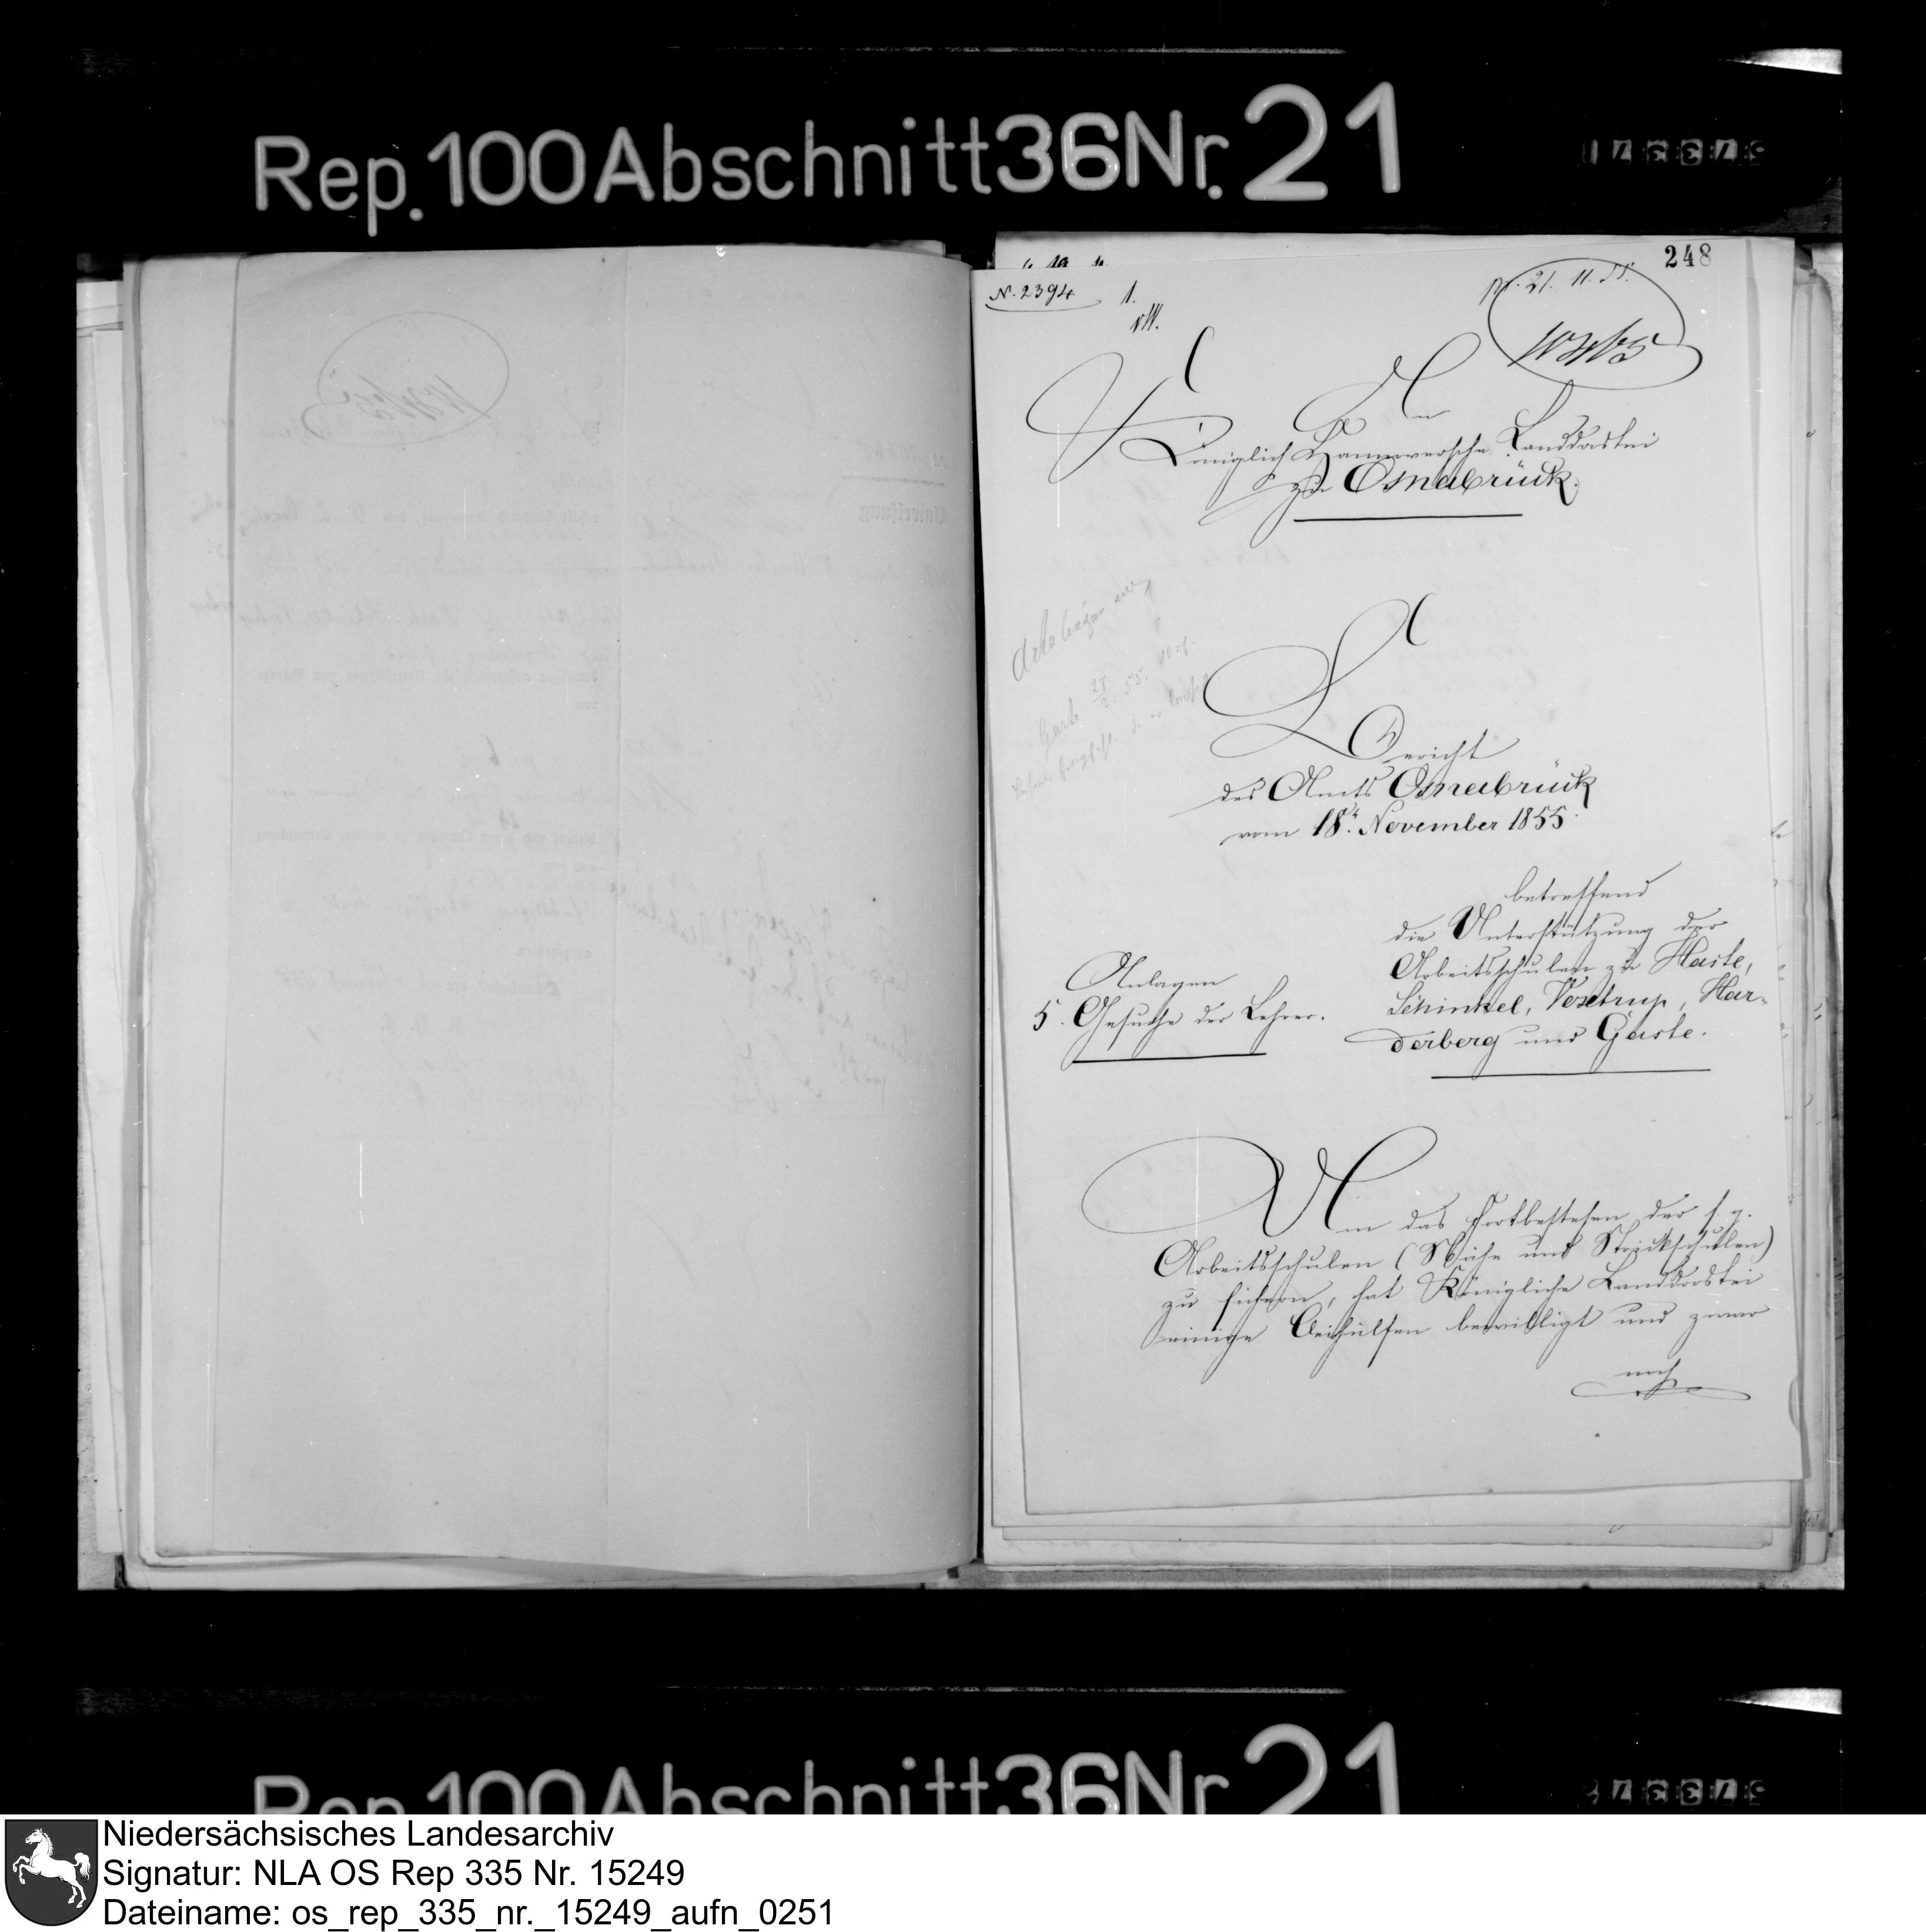 Rep. 100 Abschnitt 36 Nr. 21
248
N. 2394
1.
21. 11. 55.
An
Königlich Hannoversche Landdrostei
zu Osnabrück.
Bericht
des Amts Osnabrück
vom 18t. November 1855.
betreffend
die Unterstützung der
Arbeitsschulen zu Haste,
Schinkel, Voxtrup, Har-
derberg und Gaste.
Anlagen
5. Gesuche der Lehrer.
Um das Fortbestehen der s. g.
Arbeitsschulen (Nähe und Strickschulen)
zu sichern, hat Königliche Landdrostei
einige Beihülfen bewilligt und zwar
noch
Rep. 100 Abschnitt 36 Nr. 21
Niedersächsisches Landesarchiv
Signatur: NLA OS Rep 335 Nr. 15249
Dateiname: os_rep_335_nr._15249_aufn_0251